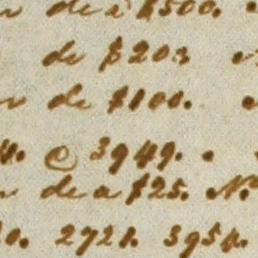 de a $500.
de $20
de $100.
@ 3949.
de a $25. N
0. 2721. 395